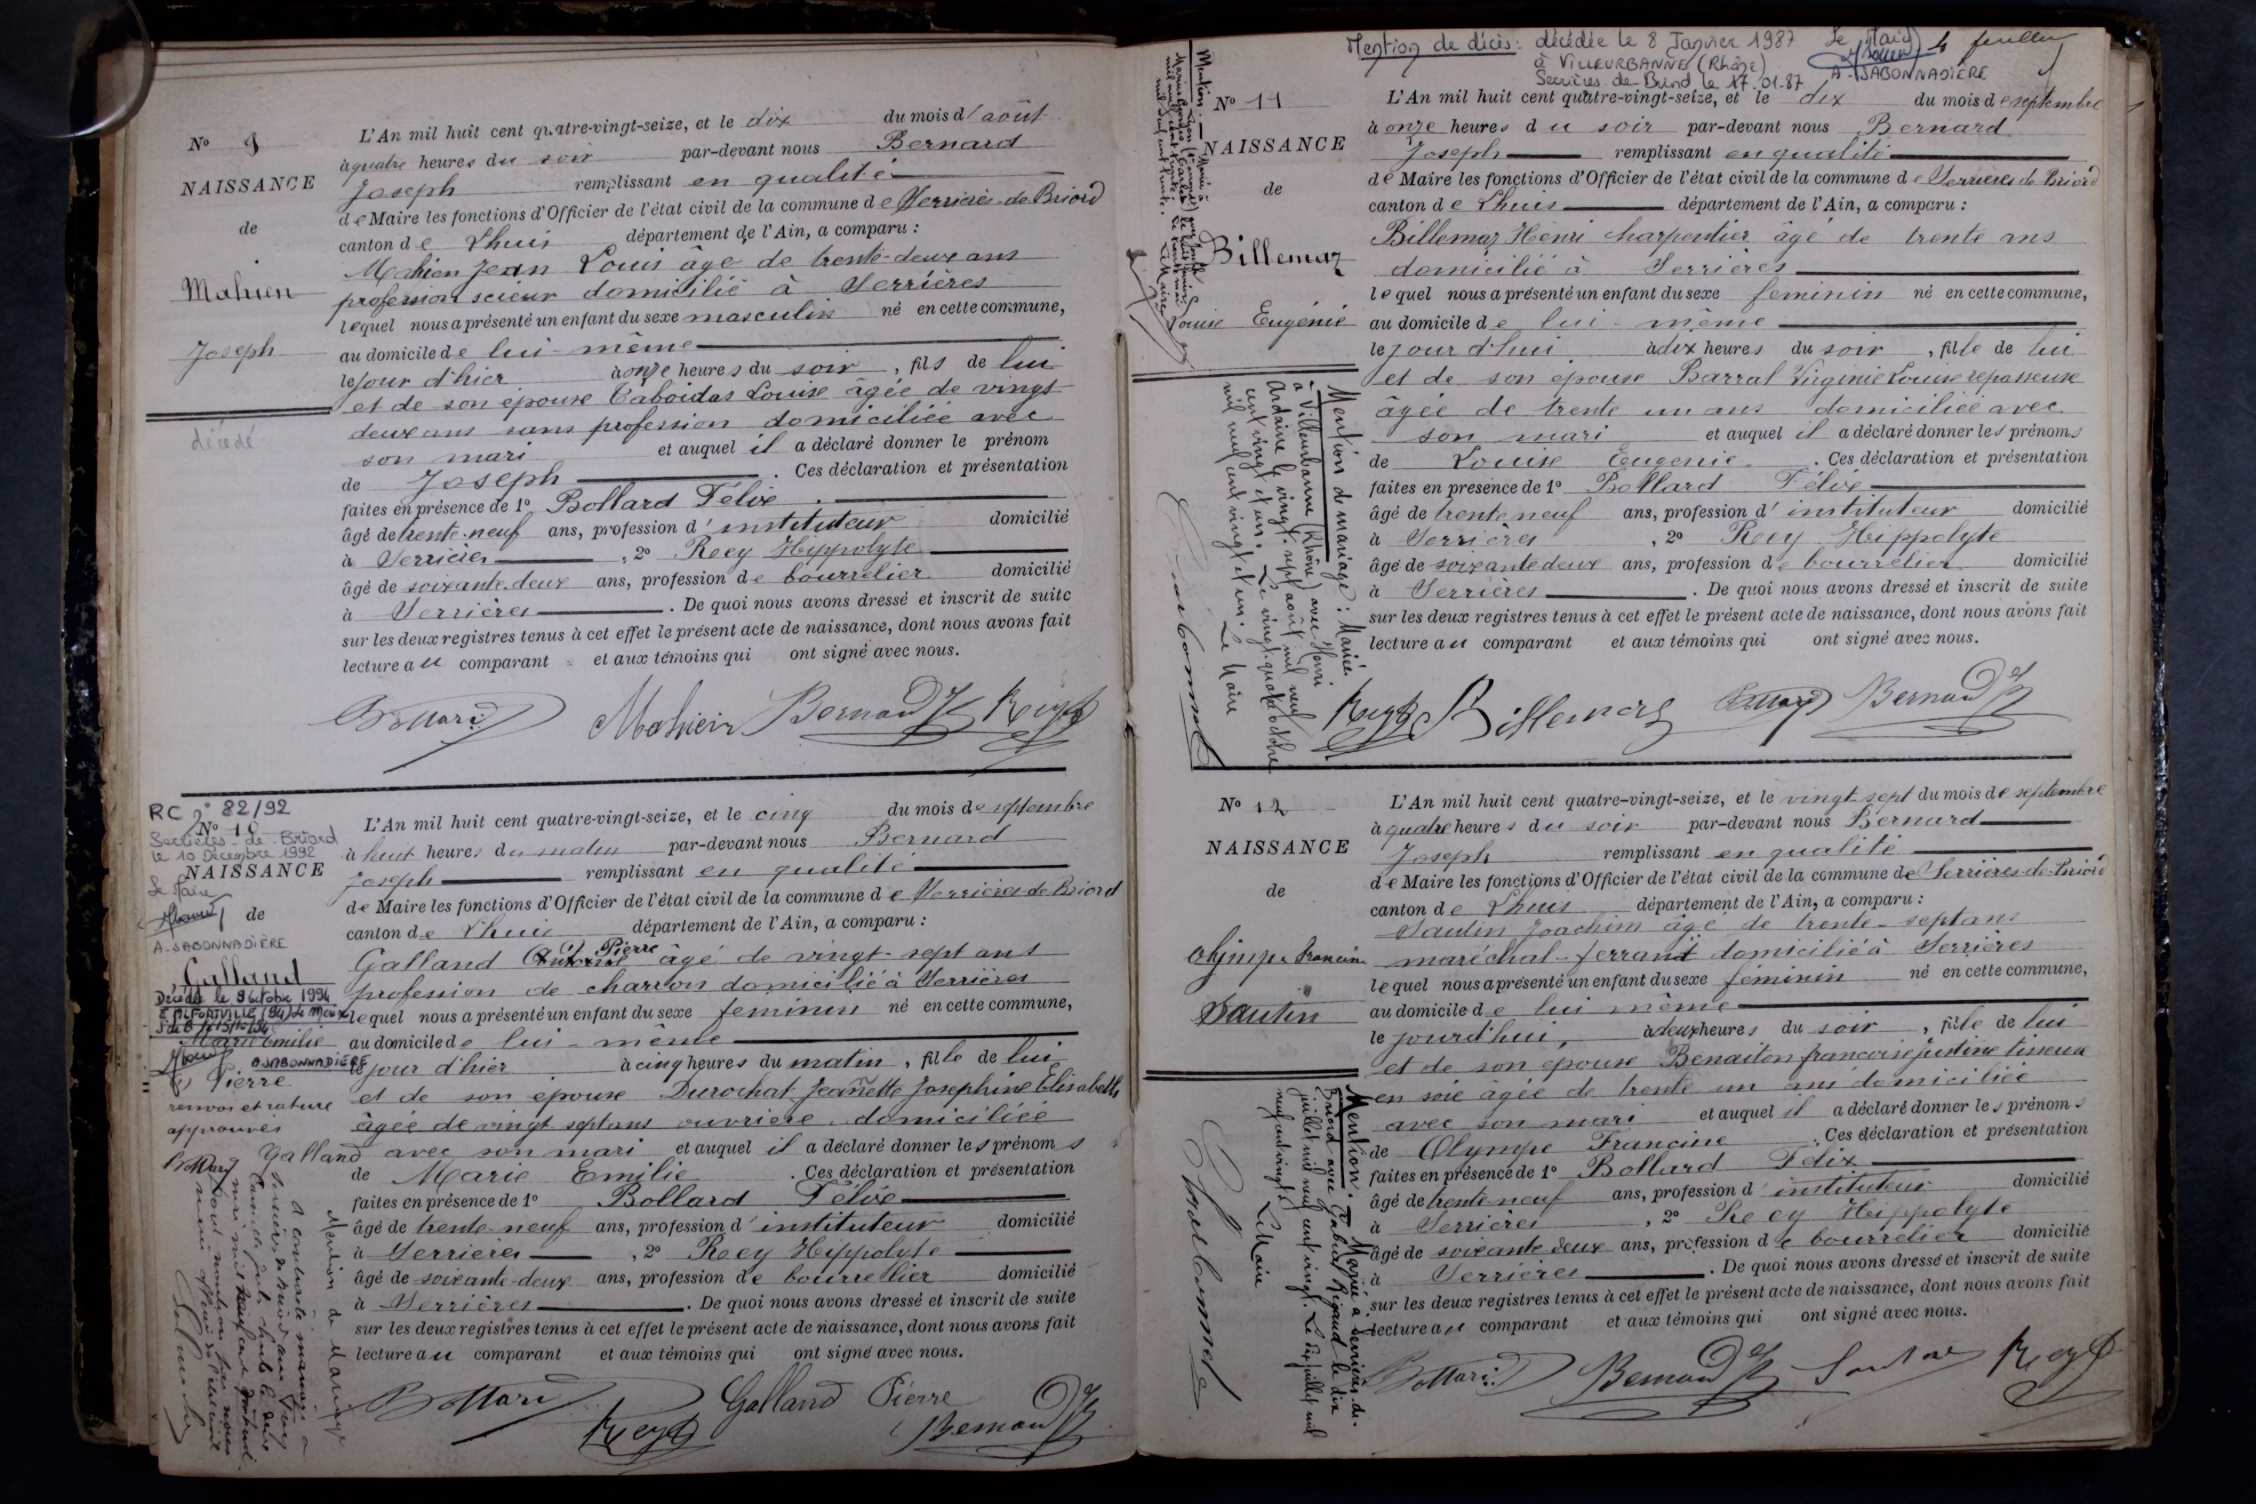 Nº 9
NAISSANCE
de
Mahien
Joseph
décédé
L'An mil huit cent quatre-vingt-seize, et le dix du mois d'août
à quatre heures du soir par-devant nous Bernard
Joseph remplissant en qualité
de Maire les fonctions d'Officier de l'état civil de la commune de Serrières-de-Briord
canton de Lhuis département de l'Ain, a comparu :
Mahien Jean Louis âgé de trente-deux ans
profession scieur domicilié à Serrières
lequel nous a présenté un enfant du sexe masculin né en cette commune,
au domicile de lui-même
le jour d'hier à onze heures du soir, fils de lui
et de son épouse Louise âgée de vingt
deux ans sans profession domiciliée avec
son mari et auquel il a déclaré donner le prénom
de Joseph. Ces déclaration et présentation
faites en présence de 1º Bollard Félix
âgé de trente-neuf ans, profession d'instituteur domicilié
à Serrières, 2º Rey Hippolyte
âgé de soixante-deux ans, profession de bourrelier domicilié
à Serrières. De quoi nous avons dressé et inscrit de suite
sur les deux registres tenus à cet effet le présent acte de naissance, dont nous avons fait
lecture au comparant et aux témoins qui ont signé avec nous.
Bollard Mahien Bernard J Rey H
RC nº 82/92
Nº 10
Serrières-de-Briord
le 10 Décembre 1992
NAISSANCE
Le Maire
de
A. SABONNADIÈRE
Galland
Décédée le 9 Octobre 1994
à ALFORTVILLE (94) Le Maire
Marie Emilie
A. SABONNADIÈRE
(1) Pierre
renvoi et rature
approuvés
Galland
Bollard
Mention de Mariage
A contracté mariage à
Serrières de Briord avec
L'An mil huit cent quatre-vingt-seize, et le cinq du mois de septembre
à huit heures du matin par-devant nous Bernard
Joseph remplissant en qualité
de Maire les fonctions d'Officier de l'état civil de la commune de Serrières-de-Briord
canton de Lhuis département de l'Ain, a comparu :
Galland (1) Pierre âgé de vingt-sept ans
profession de charron domicilié à Serrières
lequel nous a présenté un enfant du sexe feminin né en cette commune,
au domicile de lui-même
le jour d'hier à cinq heures du matin, fille de lui
et de son épouse Durochat Jeannette Josephine Elisabeth
âgée de vingt sept ans ouvrière domiciliée
avec son mari et auquel il a déclaré donner les prénoms
de Marie Emilie. Ces déclaration et présentation
faites en présence de 1º Bollard Félix
âgé de trente-neuf ans, profession d'instituteur domicilié
à Serrières, 2º Rey Hippolyte
âgé de soixante-deux ans, profession de bourrelier domicilié
à Serrières. De quoi nous avons dressé et inscrit de suite
sur les deux registres tenus à cet effet le présent acte de naissance, dont nous avons fait
lecture au comparant et aux témoins qui ont signé avec nous.
Bollard Rey H Galland Pierre Bernard J
Mention de décès : décédée le 8 Janvier 1987 Le Maire
à VILLEURBANNE (Rhône)
Serrières-de-Briord le 17.01.87 A. SABONNADIÈRE
Nº 11
NAISSANCE
de
Billemaz
Louise Eugénie
Mention de mariage : Mariée
à Villeurbanne (Rhône) avec Henri
Ardaine le vingt-sept août mil neuf
cent vingt et un. Le vingt-quatre octobre
mil neuf cent vingt et un. Le Maire
L'An mil huit cent quatre-vingt-seize, et le dix du mois de septembre
à onze heures du soir par-devant nous Bernard
Joseph remplissant en qualité
de Maire les fonctions d'Officier de l'état civil de la commune de Serrières de Briord
canton de Lhuis département de l'Ain, a comparu :
Billemaz Henri charpentier âgé de trente ans
domicilié à Serrières
lequel nous a présenté un enfant du sexe feminin né en cette commune,
au domicile de lui-même
le jour d'hui à dix heures du soir, fille de lui
et de son épouse Barral Virginie Louise repasseuse
âgée de trente un ans domiciliée avec
son mari et auquel il a déclaré donner les prénoms
de Louise Eugenie. Ces déclaration et présentation
faites en présence de 1º Bollard Félix
âgé de trente neuf ans, profession d'instituteur domicilié
à Serrières, 2º Rey Hippolyte
âgé de soixante deux ans, profession de bourrelier domicilié
à Serrières. De quoi nous avons dressé et inscrit de suite
sur les deux registres tenus à cet effet le présent acte de naissance, dont nous avons fait
lecture au comparant et aux témoins qui ont signé avec nous.
Rey H Billemaz Bollard Bernard J
Nº 12
NAISSANCE
de
Olympe Francine
Sautin
Mention. Mariée à Serrières-de-
Briord avec Gabriel Rigaud le dix
juillet mil neuf cent vingt. Le dix juillet mil
neuf cent vingt. Le Maire
L'An mil huit cent quatre-vingt-seize, et le vingt-sept du mois de septembre
à quatre heures du soir par-devant nous Bernard
Joseph remplissant en qualité
de Maire les fonctions d'Officier de l'état civil de la commune de Serrières-de-Briord
canton de Lhuis département de l'Ain, a comparu :
Sautin Joachim âgé de trente-sept ans
maréchal-ferrant domicilié à Serrières
lequel nous a présenté un enfant du sexe féminin né en cette commune,
au domicile de lui même
le jourd'hui, à deux heures du soir, fille de lui
et de son épouse Benaiton françoise justine tisseuse
en soie âgée de trente un ans domiciliée
avec son mari et auquel il a déclaré donner les prénoms
de Olympe Francine. Ces déclaration et présentation
faites en présence de 1º Bollard Félix
âgé de trente-neuf ans, profession d'instituteur domicilié
à Serrières, 2º Rey Hippolyte
âgé de soixante deux ans, profession de bourrelier domicilié
à Serrières. De quoi nous avons dressé et inscrit de suite
sur les deux registres tenus à cet effet le présent acte de naissance, dont nous avons fait
lecture au comparant et aux témoins qui ont signé avec nous.
Bollard Bernard J Sautin Rey H